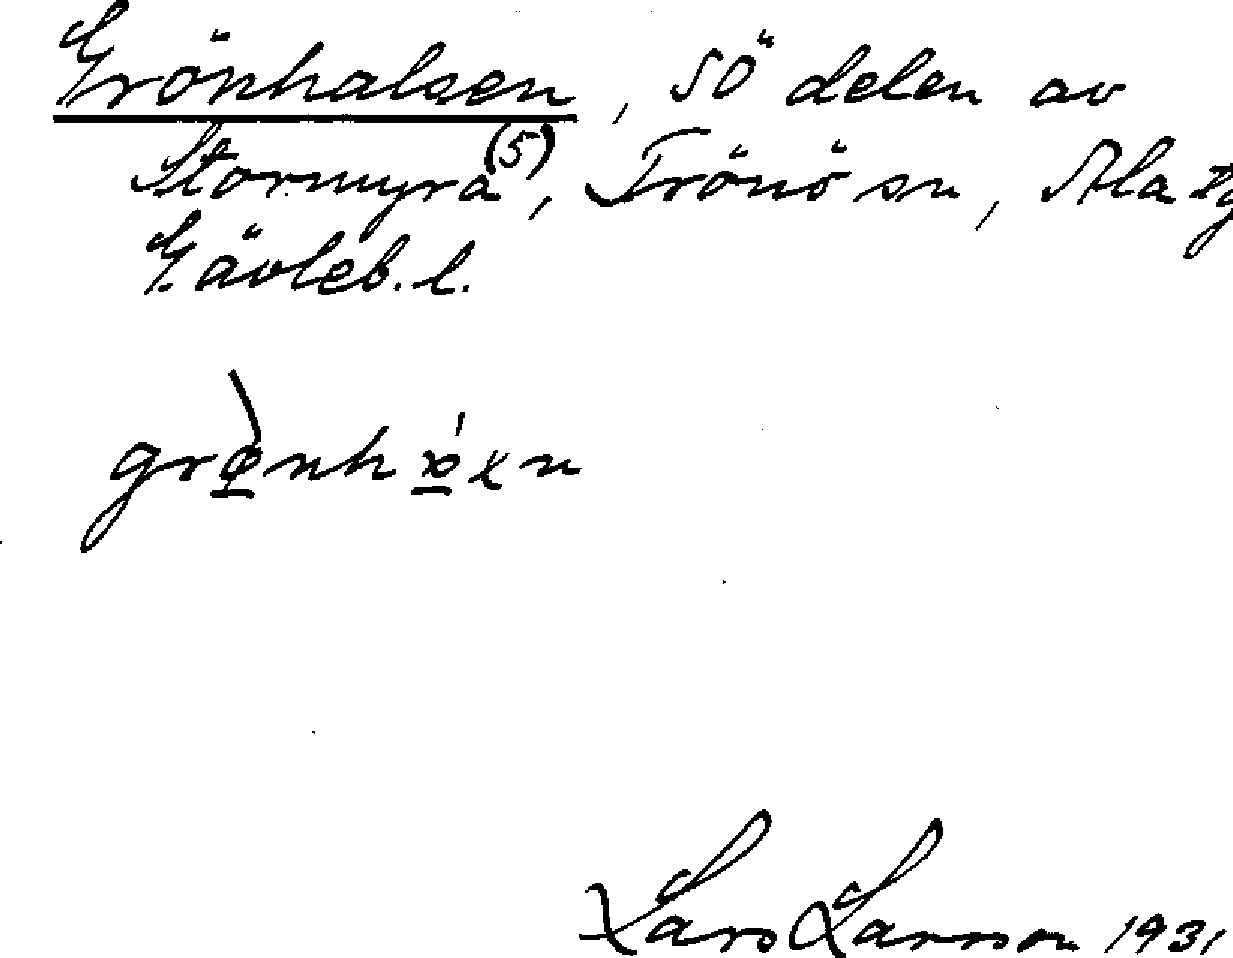 Grönhalsen, SÖ delen av
Stormyra (5), Trönö sn, Ala tg
Gävleb. l.
grø̀nháxn
Lars Larsson 1931